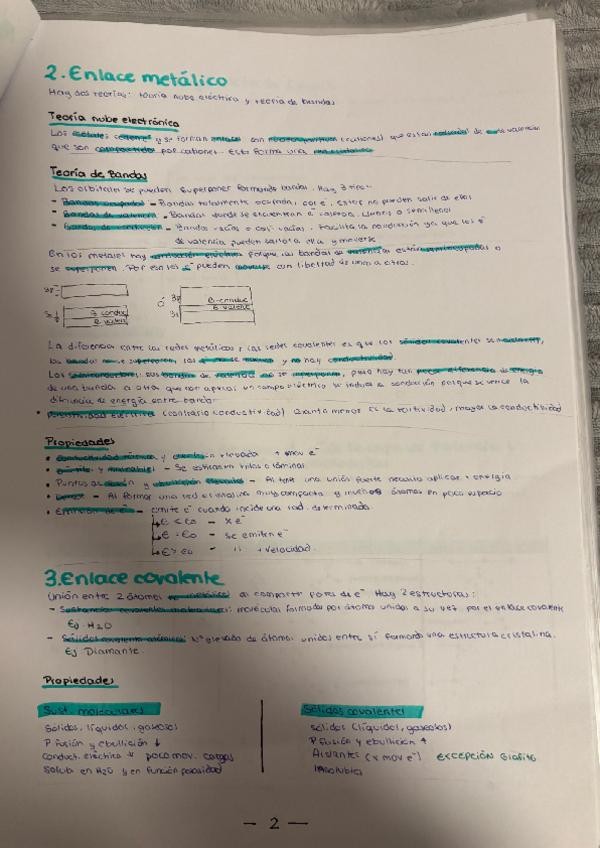 2. Enlace metálico
Hay dos teorías: teoría nube eléctrica y teoría de bandas
Teoría nube electrónica
Los metales ceden e⁻ y se forman enlaces con (cationes) que están de valencia
que son compartidos por cationes. Esto forma una
Teoría de Bandas
Los orbitales se pueden superponer formando bandas. Hay 3 tipos
- Bandas ocupadas - Bandas totalmente ocupadas con e⁻. Estos no pueden salir de ellas
- Bandas de valencia - Bandas donde se encuentran e⁻ valencia. Llenas o semillenas
- Bandas de conducción - Bandas vacías o casi vacías. Facilita la conducción ya que los e⁻
de valencia pueden saltar a ella y moverse
En los metales hay porque las bandas de valencia están o
se superponen. Por eso los e⁻ pueden moverse con libertad de unas a otras.
3p
B-conduc
B-valenc
ó
3p
3s
B-conduc
B-valenc
La diferencia entre las redes metálicas y las redes covalentes es que los sólidos covalentes
las bandas no se superponen, los e⁻ y no hay conductividad.
Los semiconductores: sus bandas de valencia no se superponen, pero hay tan poca diferencia de energía
de una banda a otra que con aplicar un campo eléctrico se induce a conducción porque se vence la
distancia de energía entre bandas
• (contrario conductividad) Cuanto menos es la resitividad, mayor la conductividad
Propiedades
• Conductividad térmica y eléctrica elevada + mov e⁻
• Dúctiles y maleables - Se estiran en hilos o láminas
• Puntos de fusión y ebullición elevados - Al tener una unión fuerte necesito aplicar + energía
• - Al formar una red cristalina muy compacta y muchos átomos en poco espacio
• Emisión de e⁻ - emite e⁻ cuando incide una rad. determinada.
E < E₀ - x e⁻
E = E₀ - se emiten e⁻
E > E₀ - " + velocidad.
3. Enlace covalente
Unión entre 2 átomos no metálicos al compartir pares de e⁻ Hay 2 estructuras:
- Sustancias covalentes moleculares: moléculas formadas por átomos unidos a su vez por el enlace covalente
Ej H₂O
- Sólidos atómicos: Nº elevado de átomos unidos entre sí formando una estructura cristalina.
Ej Diamante.
Propiedades
Sust. moleculares
Sólidos, líquidos, gaseosos
P fusión y ebullición ↓
Conduct. eléctrica ↓ poco mov. cargas
Solub en H₂O y en función polaridad
Sólidos covalentes
sólidos (líquidos, gaseosos)
P fusión y ebullición ↑
Aislantes (x mov e⁻) EXCEPCIÓN Grafito
Insolubles
— 2 —